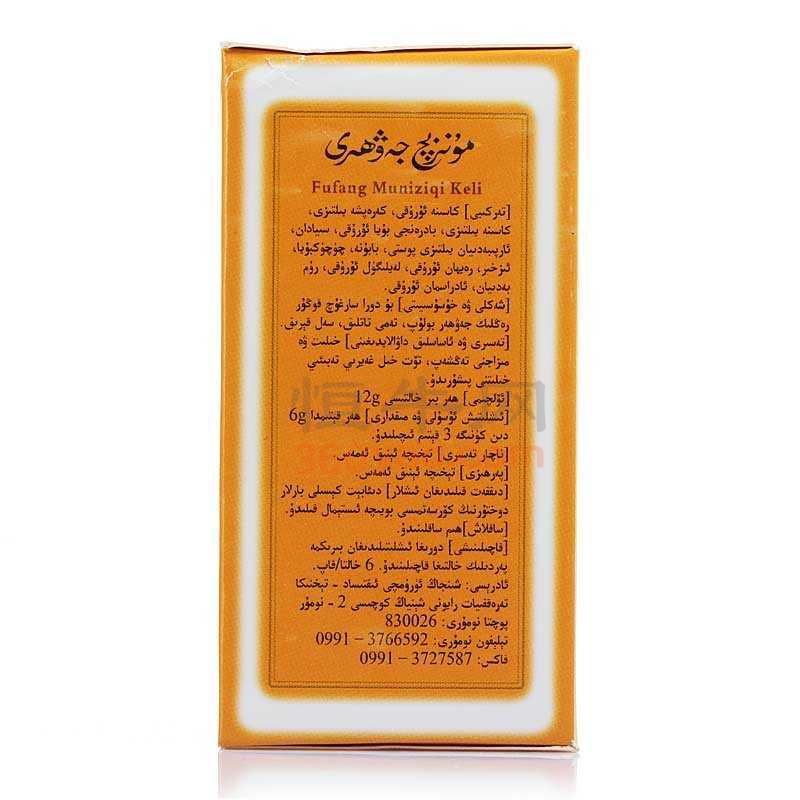 مۇنزىچ جەۋھەرى
Fufang Muniziqi Keli
[تەركىبى] كاسىنە ئۇرۇقى، كەرەپشە يىلتىزى،
كاسىنە يىلتىزى، بادەرەنجى بۇيا ئۇرۇقى، سىيادان،
ئارپىبەدىيان يىلتىزى پوستى، بابۇنە، چۈچۈكبۇيا،
ئىزخىر، رەيھان ئۇرۇقى، لەيلىگۈل ئۇرۇقى، رۇم
بەدىيان، ئادراسمان ئۇرۇقى.
[شەكلى ۋە خۇسۇسىيىتى] بۇ دورا سارغۇچ قوڭۇر
رەڭلىك جەۋھەر بولۇپ، تەمى تاتلىق، سەل قىرىق.
[تەسىرى ۋە ئاساسلىق داۋالايدىغىنى] خىلىت ۋە
مىزاجنى تەڭشەپ، تۆت خىل غەيرىي تەبىئىي
خىلىتنى پىشۇرىدۇ.
[ئۆلچىمى] ھەر بىر خالتىسى 12g
[ئىشلىتىش ئۇسۇلى ۋە مىقدارى] ھەر قېتىمدا 6g
دىن كۈنىگە 3 قېتىم ئىچىلىدۇ.
[ناچار تەسىرى] تېخىچە ئېنىق ئەمەس.
[پەرھىزى] تېخىچە ئېنىق ئەمەس.
[دىققەت قىلىدىغان ئىشلار] دىئابېت كېسىلى بارلار
دوختۇرنىڭ كۆرسەتمىسى بويىچە ئىستېمال قىلىدۇ.
[ساقلاش] ھىم ساقلىنىدۇ.
[قاچىلىنىشى] دورىغا ئىشلىتىلىدىغان بىرىكمە
پەردىلىك خالتىغا قاچىلىنىدۇ. 6 خالتا/قاپ.
ئادرېسى: شىنجاڭ ئۈرۈمچى ئىقتىساد - تېخنىكا
تەرەققىيات رايونى شېنياڭ كوچىسى 2 - نومۇر
پوچتا نومۇرى: 830026
تېلېفون نومۇرى: 3766592 – 0991
فاكس: 3727587 – 0991
恒生网